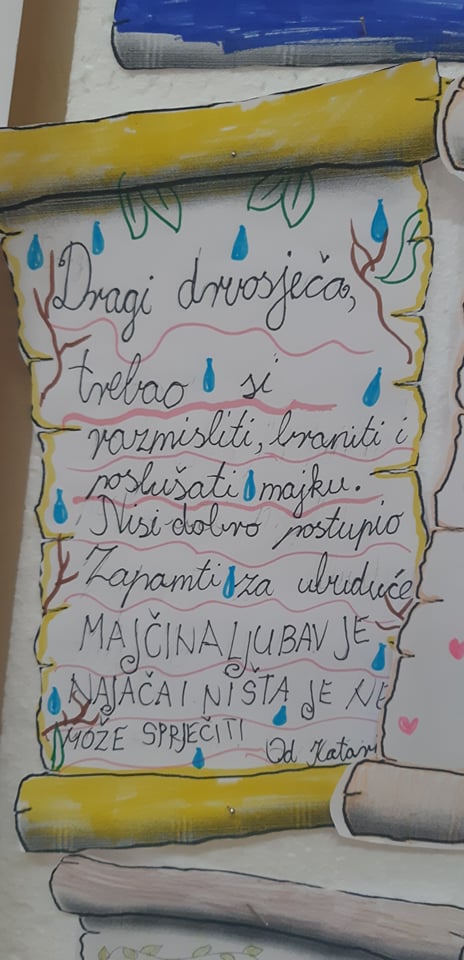 Dragi drvosječa,
trebao si
razmisliti, braniti i
poslušati majku.
Nisi dobro postupio
Zapamti za ubuduće
MAJČINA LJUBAV JE
NAJAČA I NIŠTA JE NE
MOŽE SPRJEČITI
Od Katar